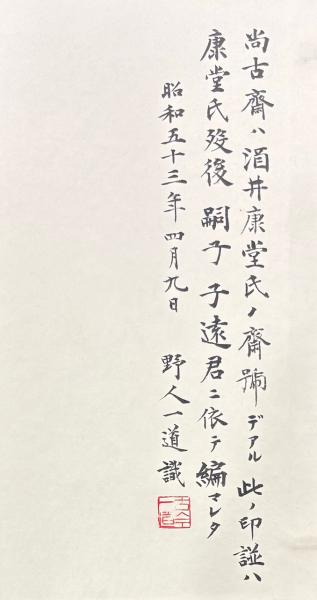 尚古齋ハ酒井康堂氏ノ齋號デアル此ノ印譜ハ
康堂氏歿後嗣子子遠君ニ依テ編マレタ
昭和五十三年四月九日　野人一道識